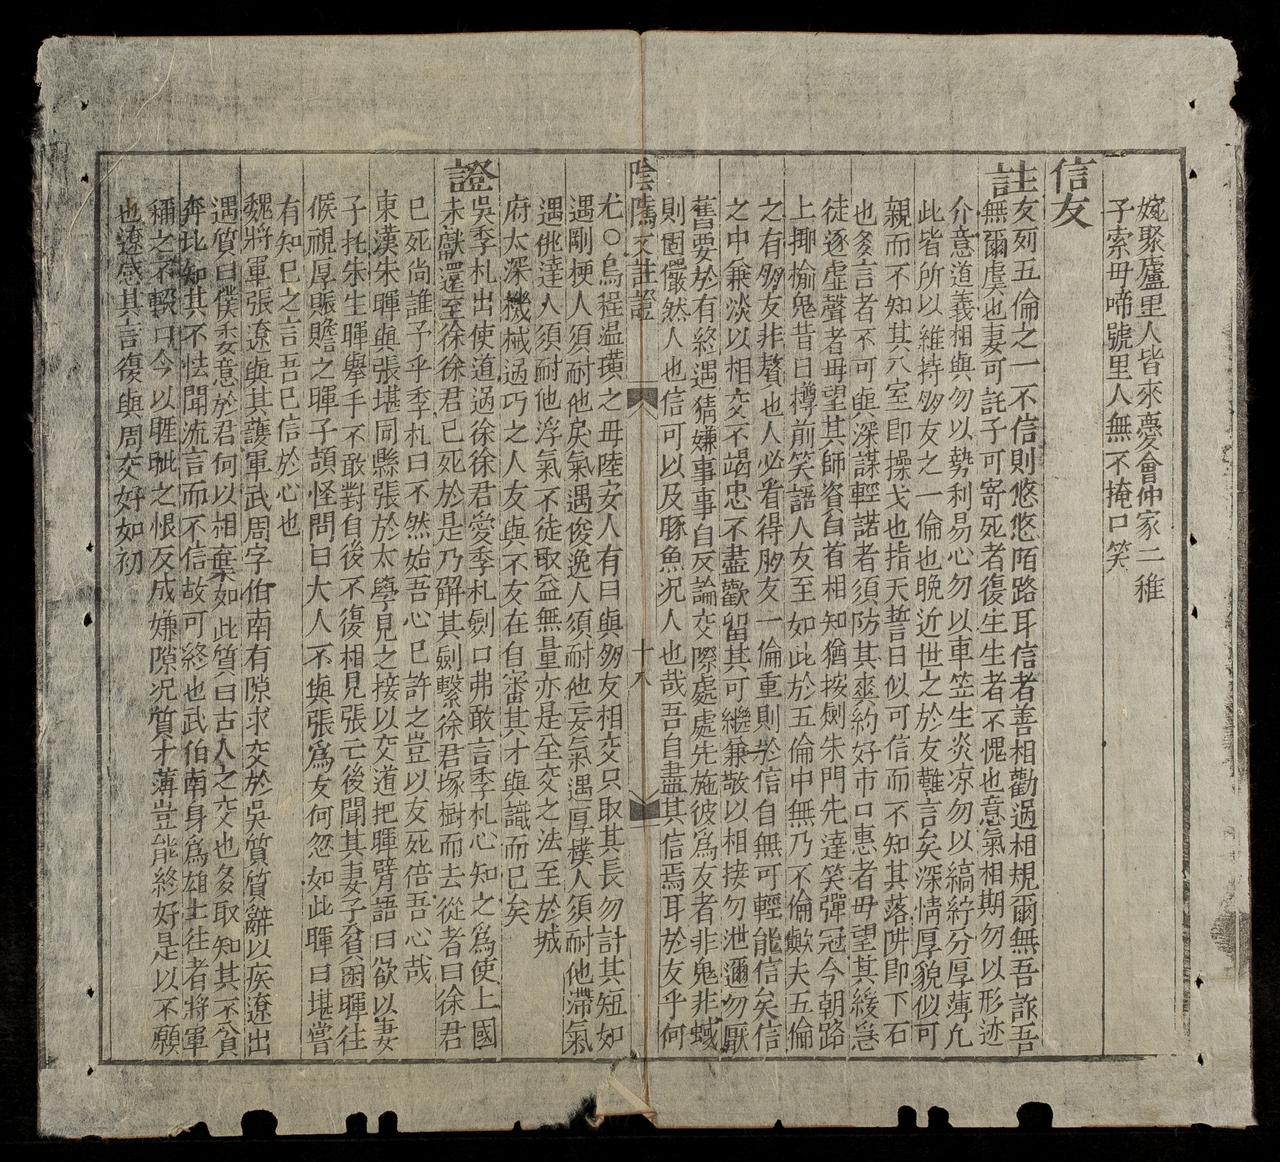 婉聚廬里人皆來憂會仲家二稚
子索毋啼號里人無不掩口笑
信友
註友列五倫之一不信則悠悠陌路耳信者善相勸過相規爾無吾詐吾
無爾虞也妻可託子可寄死者復生生者不愧也意氣相期勿以形迹
介意道義相與勿以勢利易心勿以車笠生炎凉勿以縞紵分厚薄凢
此皆所以維持朋友之一倫也晚近世之於友難言矣深情厚貌似可
親而不知其入室即操戈也指天誓日似可信而不知其落阱即下石
也多言者不可與深謀輕諾者須防其爽約好市口惠者毋望其緩急
徒逐虛聲者毋望其師資白首相知猶按劍朱門先達笑彈冠今朝路
上揶揄鬼昔日樽前笑語人友至如此於五倫中無乃不倫歟夫五倫
之有朋友非贅也人必看得朋友一倫重則於信自無可輕能信矣信
之中兼淡以相交不竭忠不盡歡留其可繼兼敬以相接勿泄邇勿厭
舊要於有終遇猜嫌事事自反論交際處處先施彼爲友者非鬼非蜮
則固儼然人也信可以及豚魚况人也哉吾自盡其信焉耳於友乎何
陰隲文註證
十八
尤○烏程温璜之毋陸安人有曰與朋友相交只取其長勿計其短如
遇剛梗人須耐他戾氣遇俊逸人須耐他妄氣遇厚樸人須耐他滯氣
遇佻達人須耐他浮氣不徒取益無量亦是全交之法至於城
府太深機械過巧之人友與不友在自審其才與識而已矣
證吳季札出使道過徐徐君愛季札劍口弗敢言季札心知之爲使上國
未獻還至徐徐君已死於是乃解其劍繫徐君塚樹而去從者曰徐君
已死尚誰予乎季札曰不然始吾心已許之豈以友死倍吾心哉
東漢朱暉與張堪同縣張於太學見之接以交道把暉臂語曰欲以妻
子托朱生暉舉手不敢對自後不復相見張亡後聞其妻子貧困暉往
候視厚賑贍之暉子頡怪問曰大人不與張爲友何忽如此暉曰堪嘗
有知已之言吾已信於心也
魏將軍張遼與其護軍武周字伯南有隙求交於吳質質辭以疾遼出
遇質曰僕委意於君何以相棄如此質曰古人之交也多取知其不貪
奔北知其不怯聞流言而不信故可終也武伯南身爲雄士往者將軍
稱之不輟口今以睚眦之恨反成嫌隙况質才薄豈能終好是以不願
也遼感其言復與周交好如初